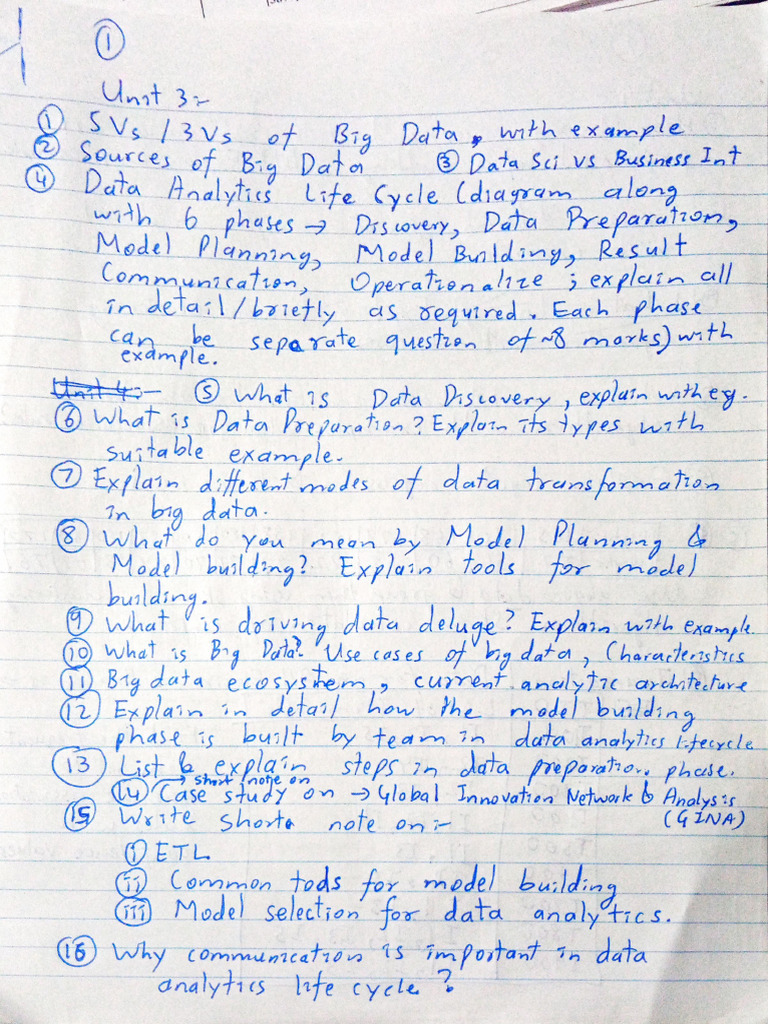 ①
Unit 3:-
① 5Vs / 3Vs of Big Data, with example
② Sources of Big Data ③ Data Sci vs Business Int
④ Data Analytics Life Cycle (diagram along
with 6 phases → Discovery, Data Preparation,
Model Planning, Model Building, Result
Communication, Operationalize ; explain all
in detail/briefly as required. Each phase
can be separate question of ~8 marks) with
example.
Unit 4:- ⑤ What is Data Discovery, explain with eg.
⑥ What is Data Preparation? Explain its types with
suitable example.
⑦ Explain different modes of data transformation
in big data.
⑧ What do you mean by Model Planning &
Model building? Explain tools for model
building.
⑨ What is driving data deluge? Explain with example.
⑩ What is Big Data? Use cases of big data, Characteristics
⑪ Big data ecosystem, current analytic architecture
⑫ Explain in detail how the model building
phase is built by team in data analytics lifecycle
⑬ List & explain steps in data preparation phase.
→ short note on
⑭ Case study on → Global Innovation Network & Analysis
(GINA)
⑮ Write short note on:-
ⓘ ETL
ⓘⓘ Common tools for model building
ⓘⓘⓘ Model selection for data analytics.
⑯ Why communication is important in data
analytics life cycle?